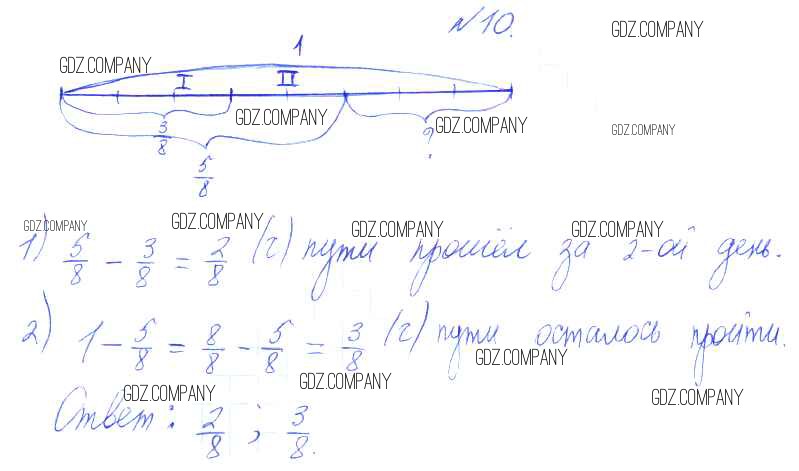 №10.
1
GDZ.COMPANY
GDZ.COMPANY
I II
GDZ.COMPANY
GDZ.COMPANY
GDZ.COMPANY
3/8
?
5/8
GDZ.COMPANY
GDZ.COMPANY
GDZ.COMPANY
GDZ.COMPANY
1) 5/8 - 3/8 = 2/8 (ч) пути прошёл за 2-ой день.
2) 1 - 5/8 = 8/8 - 5/8 = 3/8 (ч) пути осталось пройти.
GDZ.COMPANY
GDZ.COMPANY
GDZ.COMPANY
GDZ.COMPANY
Ответ: 2/8 ; 3/8.